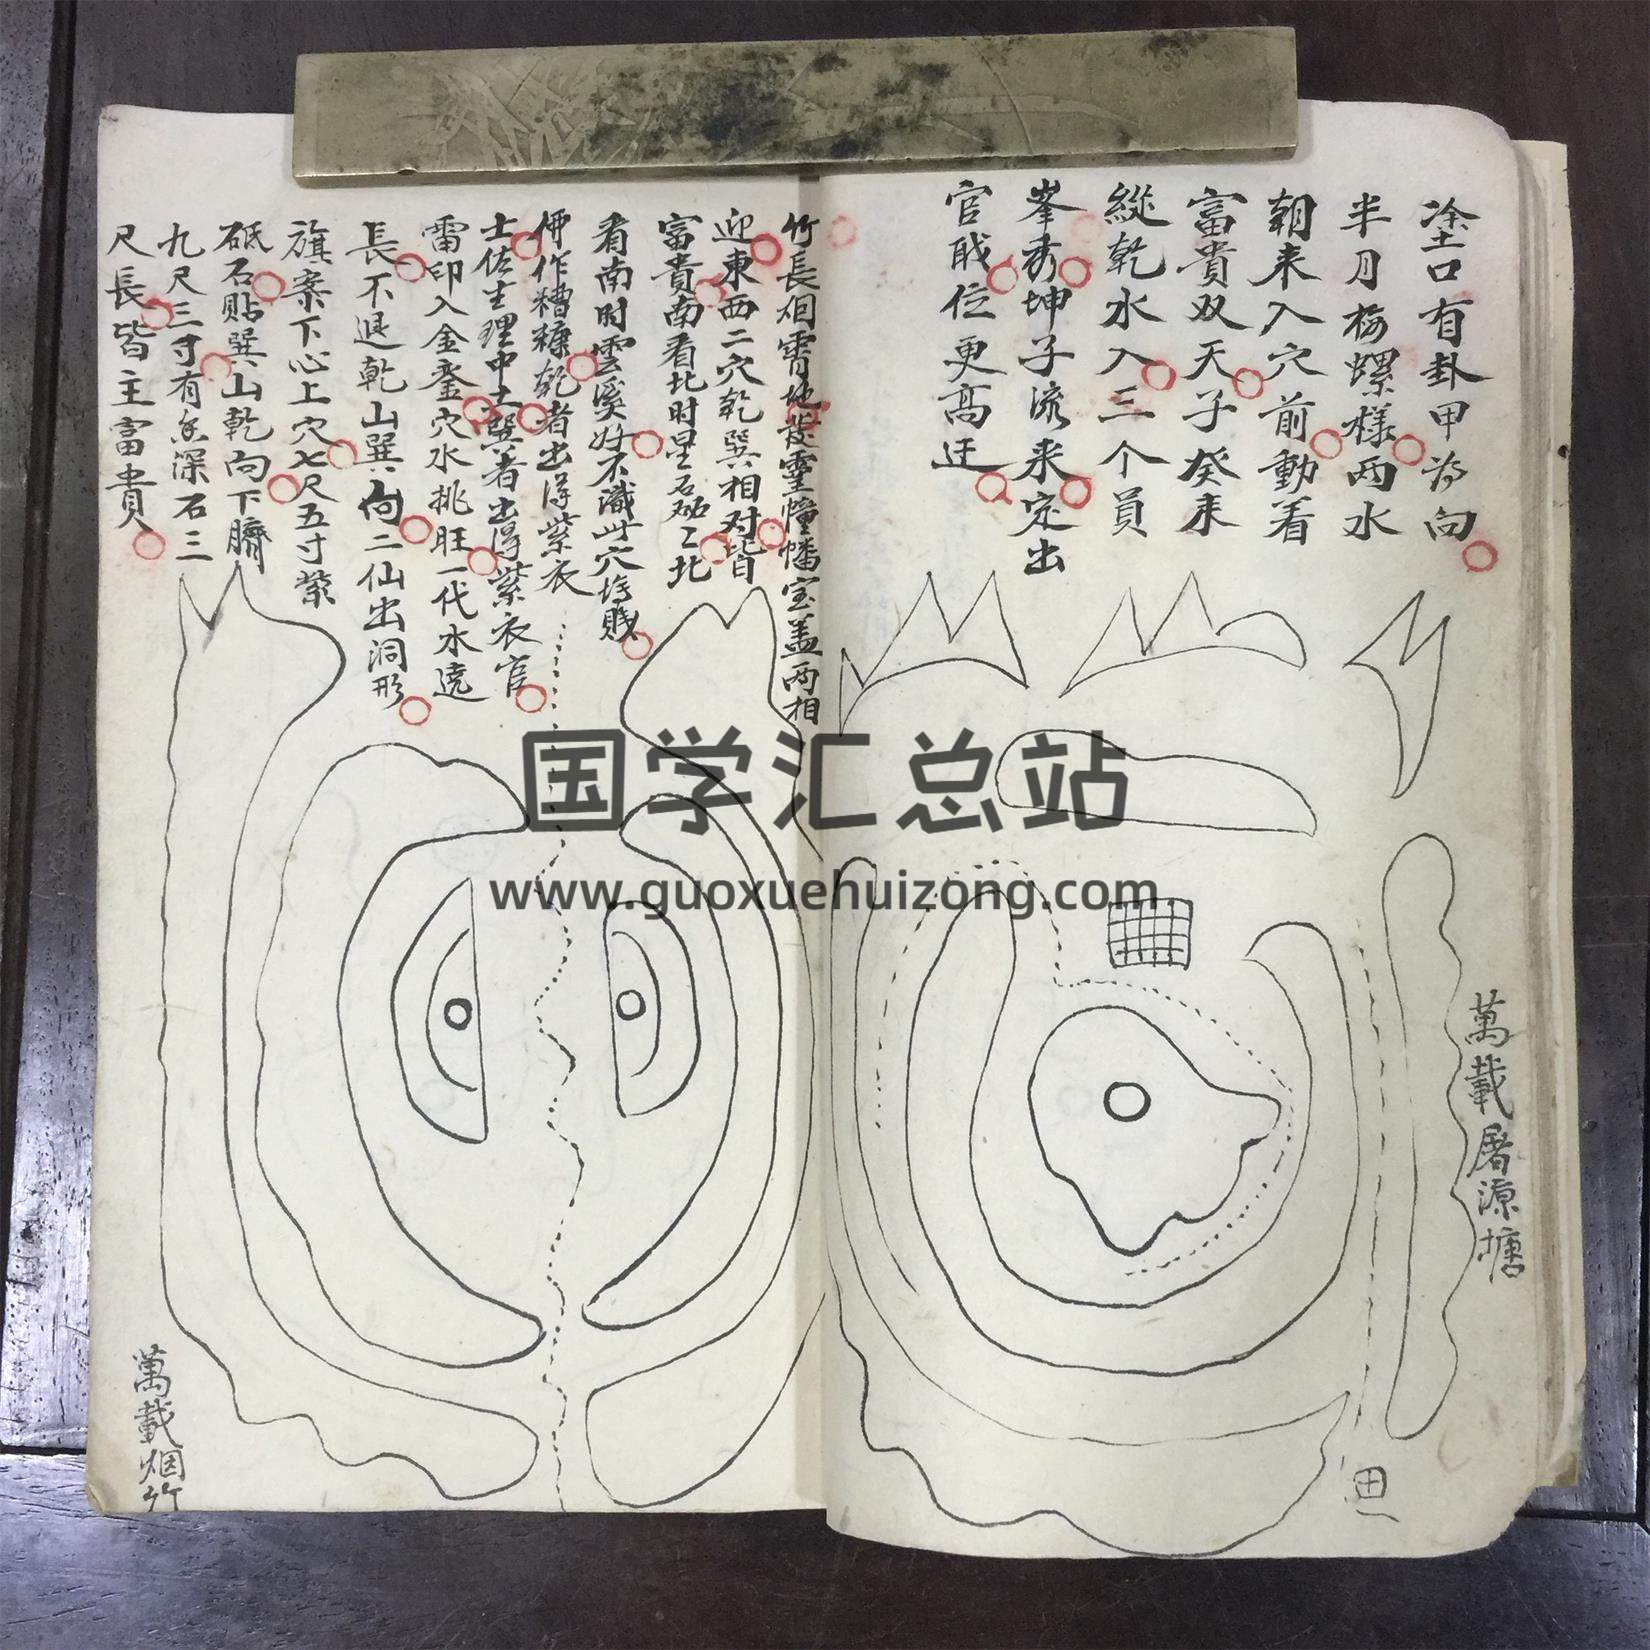 塗口有卦甲为向
半月梅螺樣两水
朝来入穴前動着
富貴双天子癸来
縱乾水入三个員
峯秀坤子流来定出
官戝位更高迁
萬載屠源塘
田
竹長烟霄地發靈幢幡宝盖两相
迎東西二穴乾巽相对皆
富貴南看北时星石砳〻北
看南时雲溪好不識此穴塟賤
傅作糟糠乾者出淂紫衣
士佐生理中土巽者出淂紫衣官
雷印入金釜穴水挑旺一代水遶
長不退乾山巽向二仙出洞形
旗案下心上穴七尺五寸紫
砥石贴巽山乾向下臍
九尺三寸有魚深石三
尺長皆主富貴
萬載烟竹
国学汇总站
www.guoxuehuizong.com